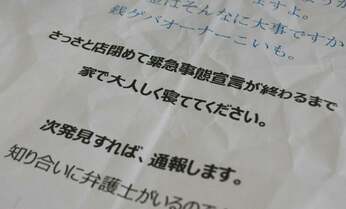 はそんなに大事ですか
銭ゲバオーナーこいも。
さっさと店閉めて緊急事態宣言が終わるまで
家で大人しく寝ててください。
次発見すれば、通報します。
知り合いに弁護士がいるので